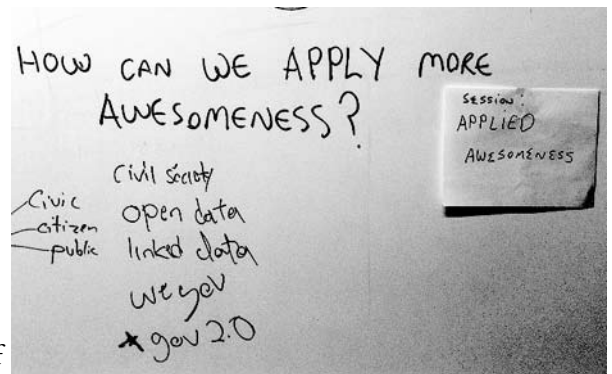 HOW CAN WE APPLY MORE
AWESOMENESS?
Session:
APPLIED
AWESOMENESS
Civil society
Civic
open data
citizen
public
linked data
we gov
★ gov 2.0